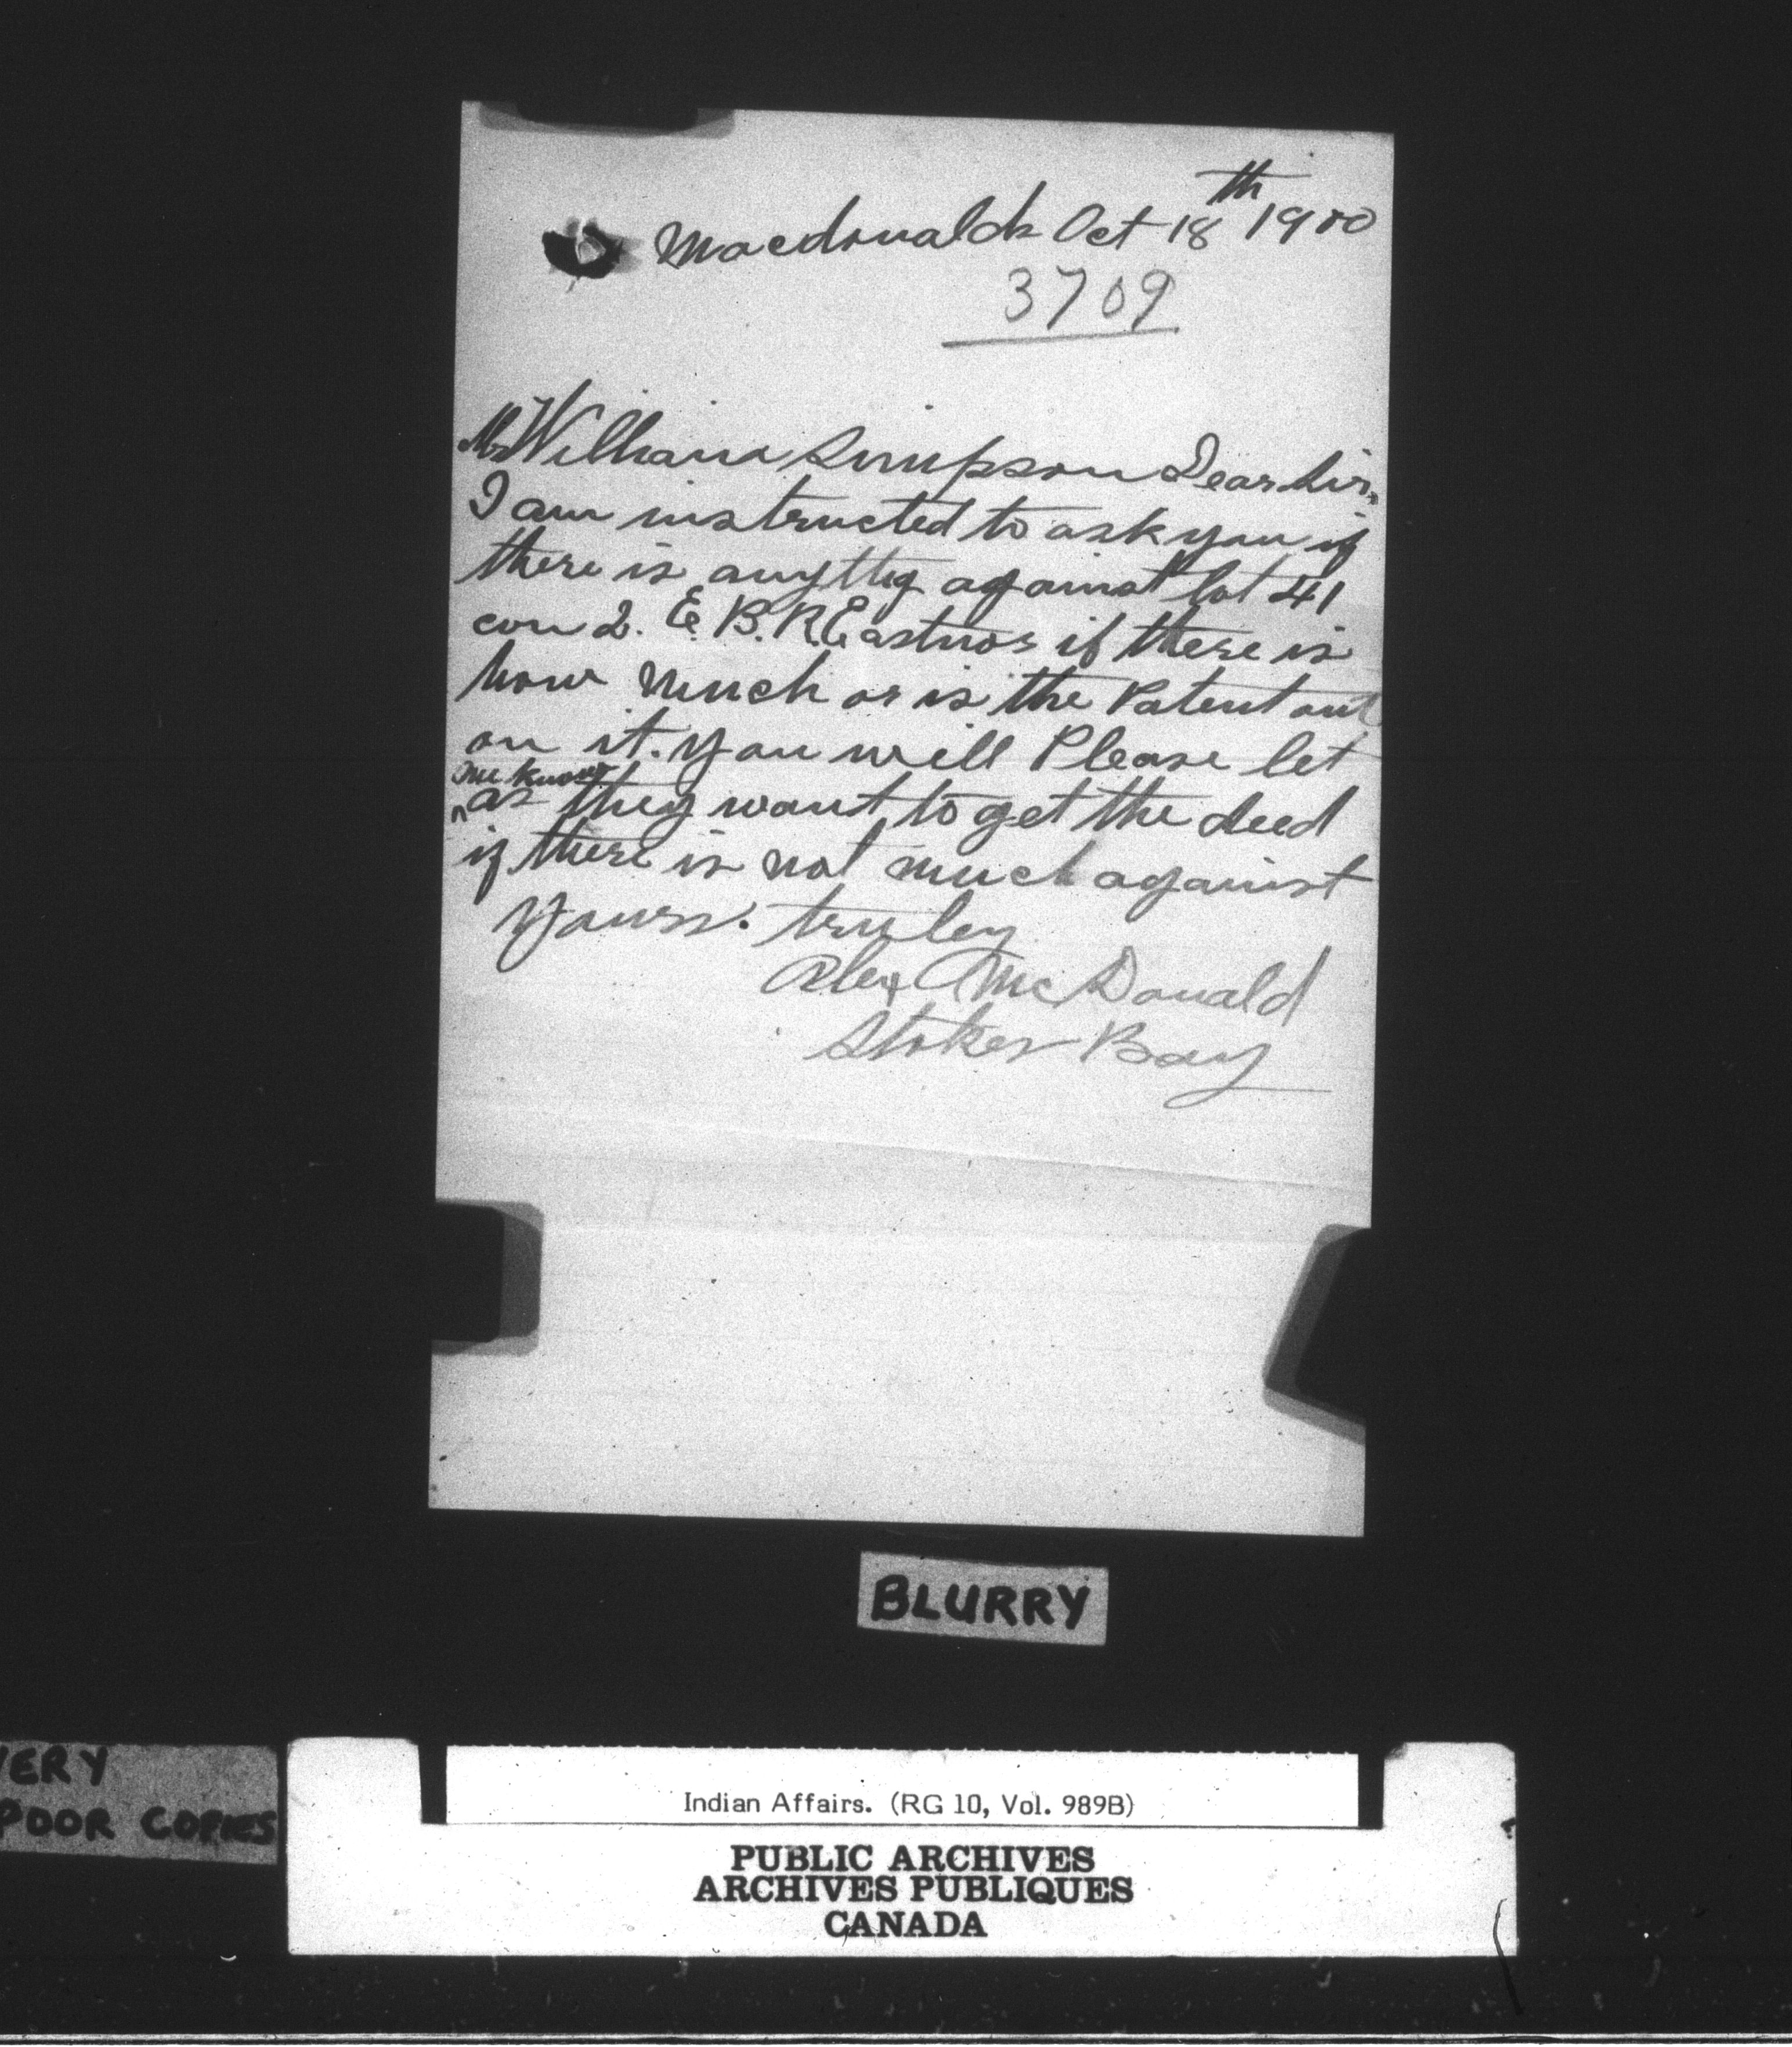 Macdonalds Oct 18th 1900
3709
Mr William Simpson Dear Sir,
I am instructed to ask you if
there is anythg against lot 41
con 2. E. B. R Eastnor if there is
how much or is the Patent out
on it. you will Please let
me know
^as they want to get the deed
if there is not much against
yours. truley
Alex McDonald
Stokes Bay
BLURRY
VERY
POOR COPIES
Indian Affairs. (RG 10, Vol. 989B)
PUBLIC ARCHIVES
ARCHIVES PUBLIQUES
CANADA